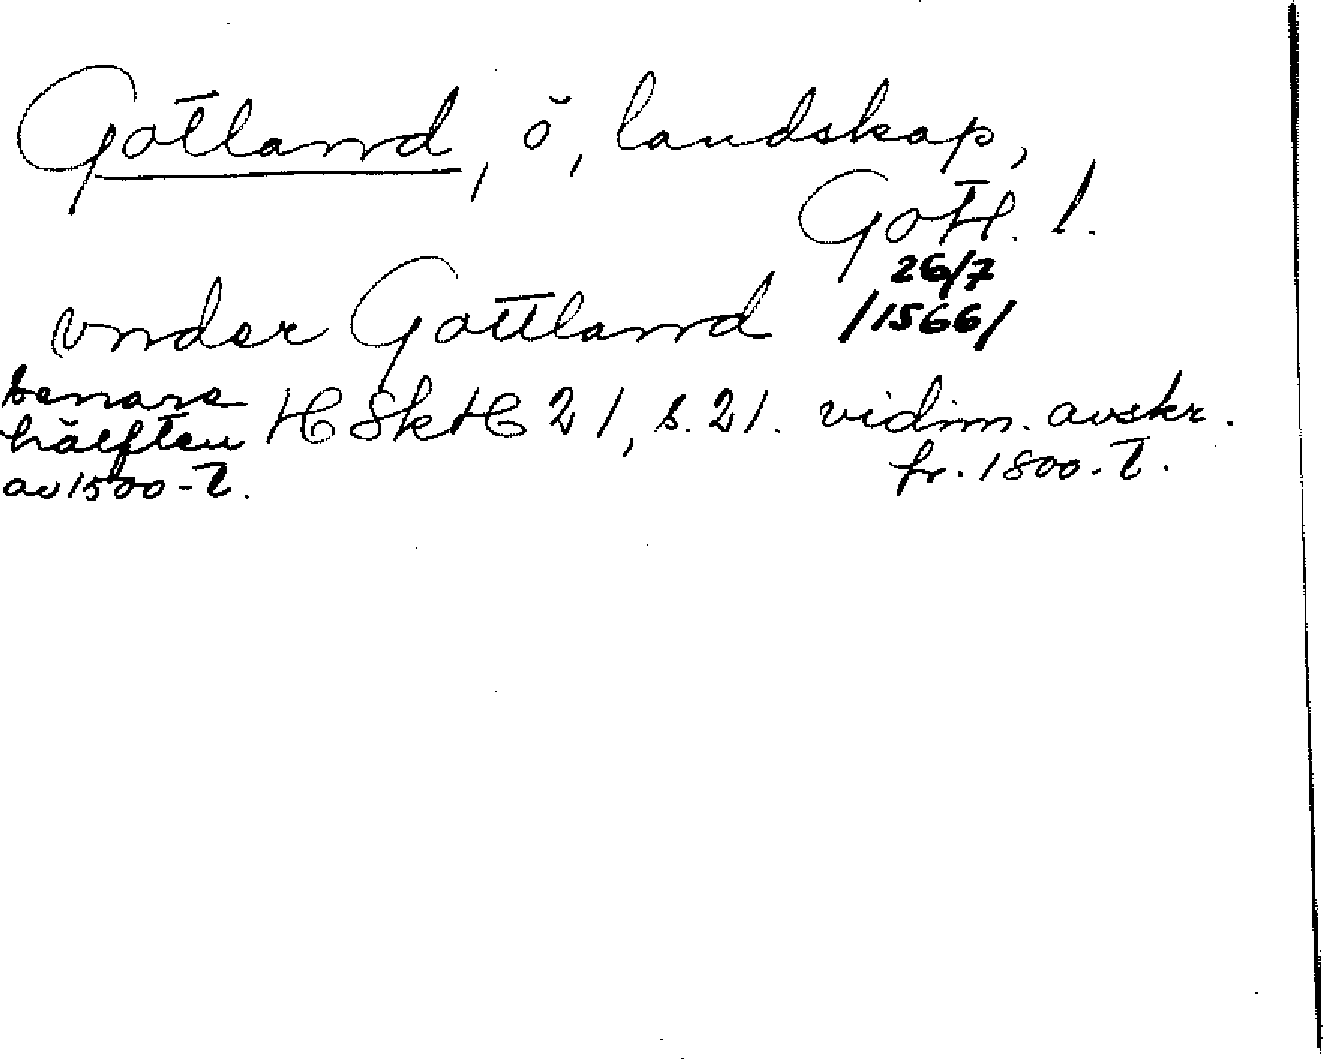 Gotland, ö, landskap,
Gotl. l.
26/7
vnder Gottland /1566/
senare HSkH 21, s. 21. vidim. avskr.
hälften fr. 1800-t.
av 1500-t.